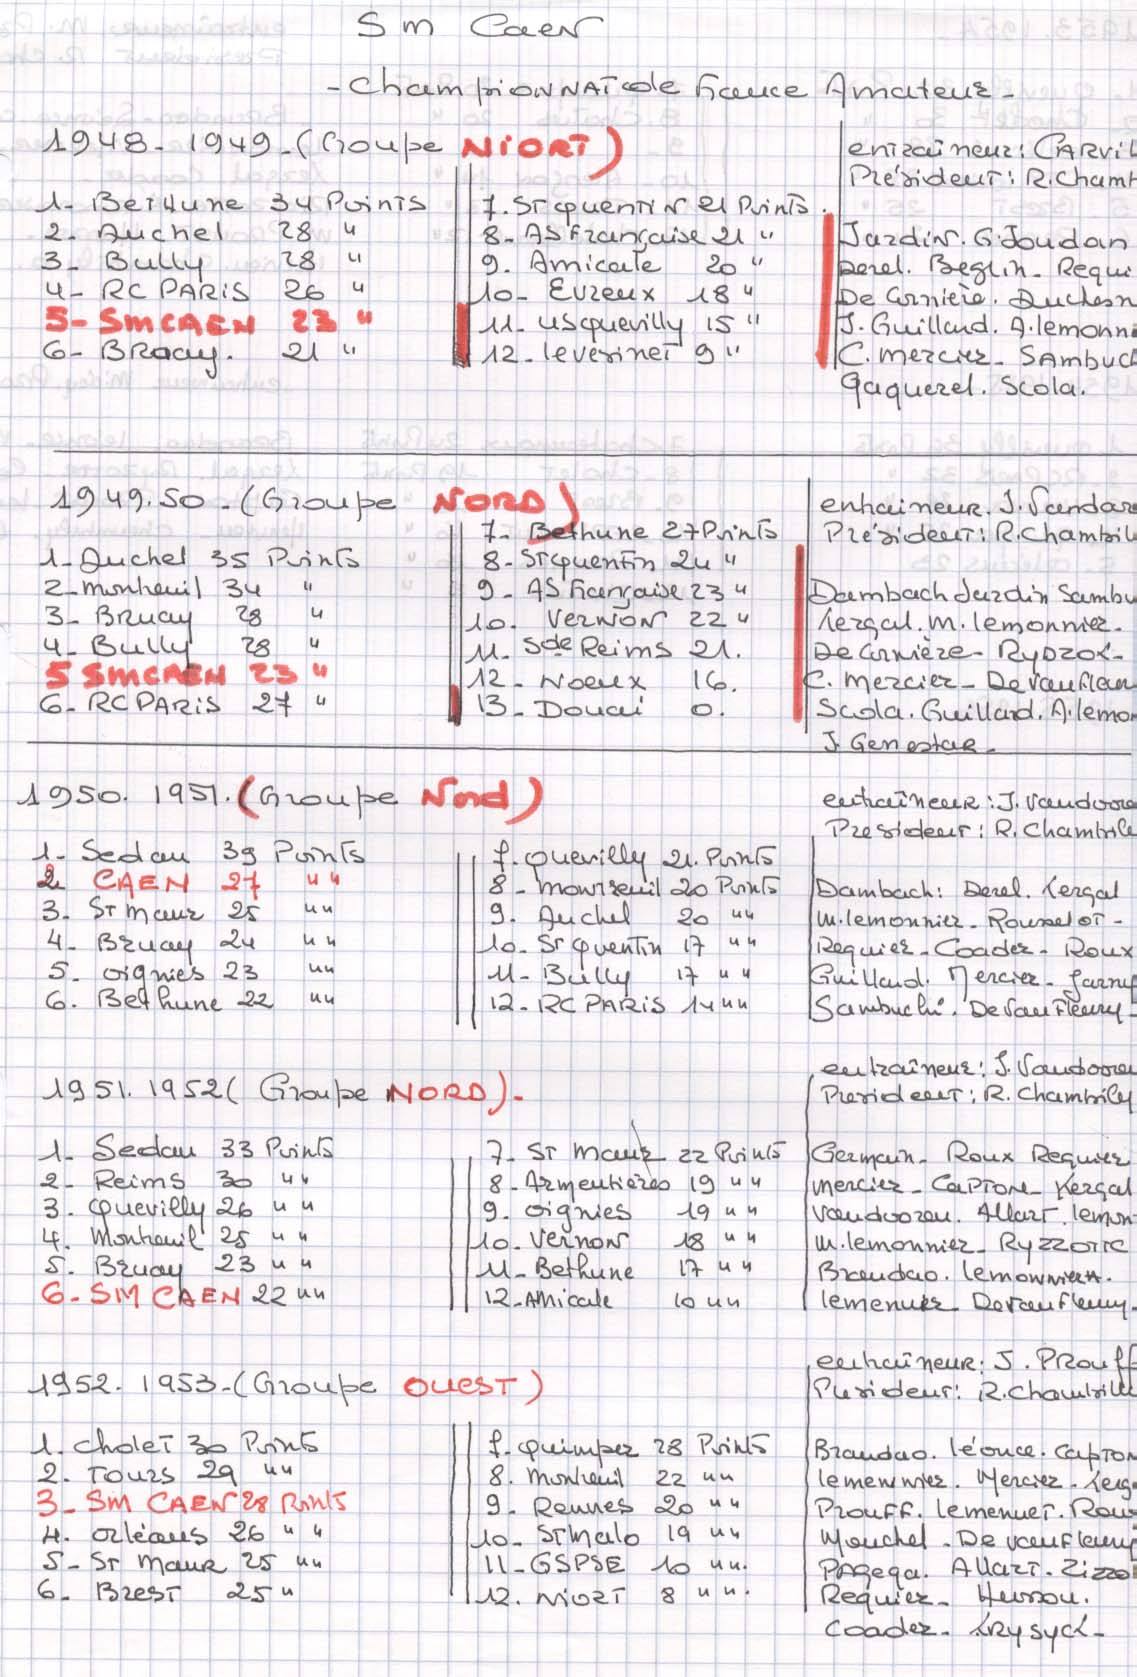 SM Caen
- Championnat de France Amateur -
1948 - 1949 - (Groupe NIORT)
entraîneur: CARVIL
Président: R. Chamb
1- Bethune 34 Points
2- Auchel 28 "
3- Bully 28 "
4- RC PARIS 26 "
5- SM CAEN 23 "
6- BRuay. 21 "
7. St quentin 21 Points.
8- AS Française 21 "
9. Amicale 20 "
10- Evreux 18 "
11- us quevilly 15 "
12. levesinet 9 "
Jardin. G. Joudan
Derel. Beglin - Requi
De Cornière. Duchesn
J. Guillard. A. lemonn
C. Mercier - SAmbuc
Gaquerel. Scola.
1949.50 - (Groupe NORD)
entraineur. J. Vandor
Président: R. Chambil
1- Auchel 35 Points
2- Montreuil 34 "
3- Bruay 28 "
4- Bully 28 "
5 SM CAEN 23 "
6- RC PARIS 27 "
7- Bethune 27 Points
8- St quentin 24 "
9- AS Française 23 "
10. Vernon 22 "
11- Sde Reims 21.
12- Noeux 16.
13- Douai 0.
Dambach Jardin Sambu
Kergal. M. lemonnier.
De Cornière - Rydzok -
C. Mercier - Devaufleu
Scola. Guillard. A. lemo
J. Genestar -
1950. 1951. (Groupe Nord)
entraîneur: J. Vandoore
President: R. Chambile
1- Sedan 39 Points
2. CAEN 27 " "
3- St Maur 25 " "
4- Bruay 24 " "
5. oignies 23 " "
6. Bethune 22 " "
7. Quevilly 21. Points
8- Montreuil 20 Points
9. Auchel 20 " "
10- St quentin 17 " "
11- Bully 17 " "
12- RC PARIS 14 " "
Dambach: Derel. Kergal
M. lemonnier - Rousselot -
Requier - Coader - Roux
Guillard. Mercier -
Sambuchi. Devaufleury -
1951. 1952 (Groupe NORD) -
entraîneur: J. Vandoore
President: R. Chambily
1- Sedan 33 Points
2- Reims 30 " "
3. Quevilly 26 " "
4. Montreuil 25 " "
5. Bruay 23 " "
6- SM CAEN 22 " "
7- St Maur 22 Points
8- Armentières 19 " "
9. Oignies 19 " "
10. Vernon 18 " "
11- Bethune 17 " "
12- Amicale 10 " "
Germain - Roux Requier
Mercier - Capton - Kergal
Vandvoren. Allart. lemon
M. lemonnier -
Brandao. lemonnier A.
lemenuer Devaufleury -
1952. 1953 - (Groupe OUEST)
entraîneur: J. Prouff
President: R. Chambille
1. Cholet 30 Points
2. Tours 29 " "
3- SM CAEN 28 Points
4. orléans 26 " "
5- St Maur 25 " "
6- Brest 25 "
7. Quimper 28 Points
8. Montreuil 22 " "
9- Rennes 20 " "
10- St Malo 19 " "
11- GSPSE 10 " ".
12. Niort 8 " ".
Brandao. léonce. Capton
lemennier. Mercier. Kerg
Prouff. lemenuet. Rou
Mouchel. De vaufleury
Pagega. Allart. Zizzo
Requier - Hersou.
Coader - KRysyck -